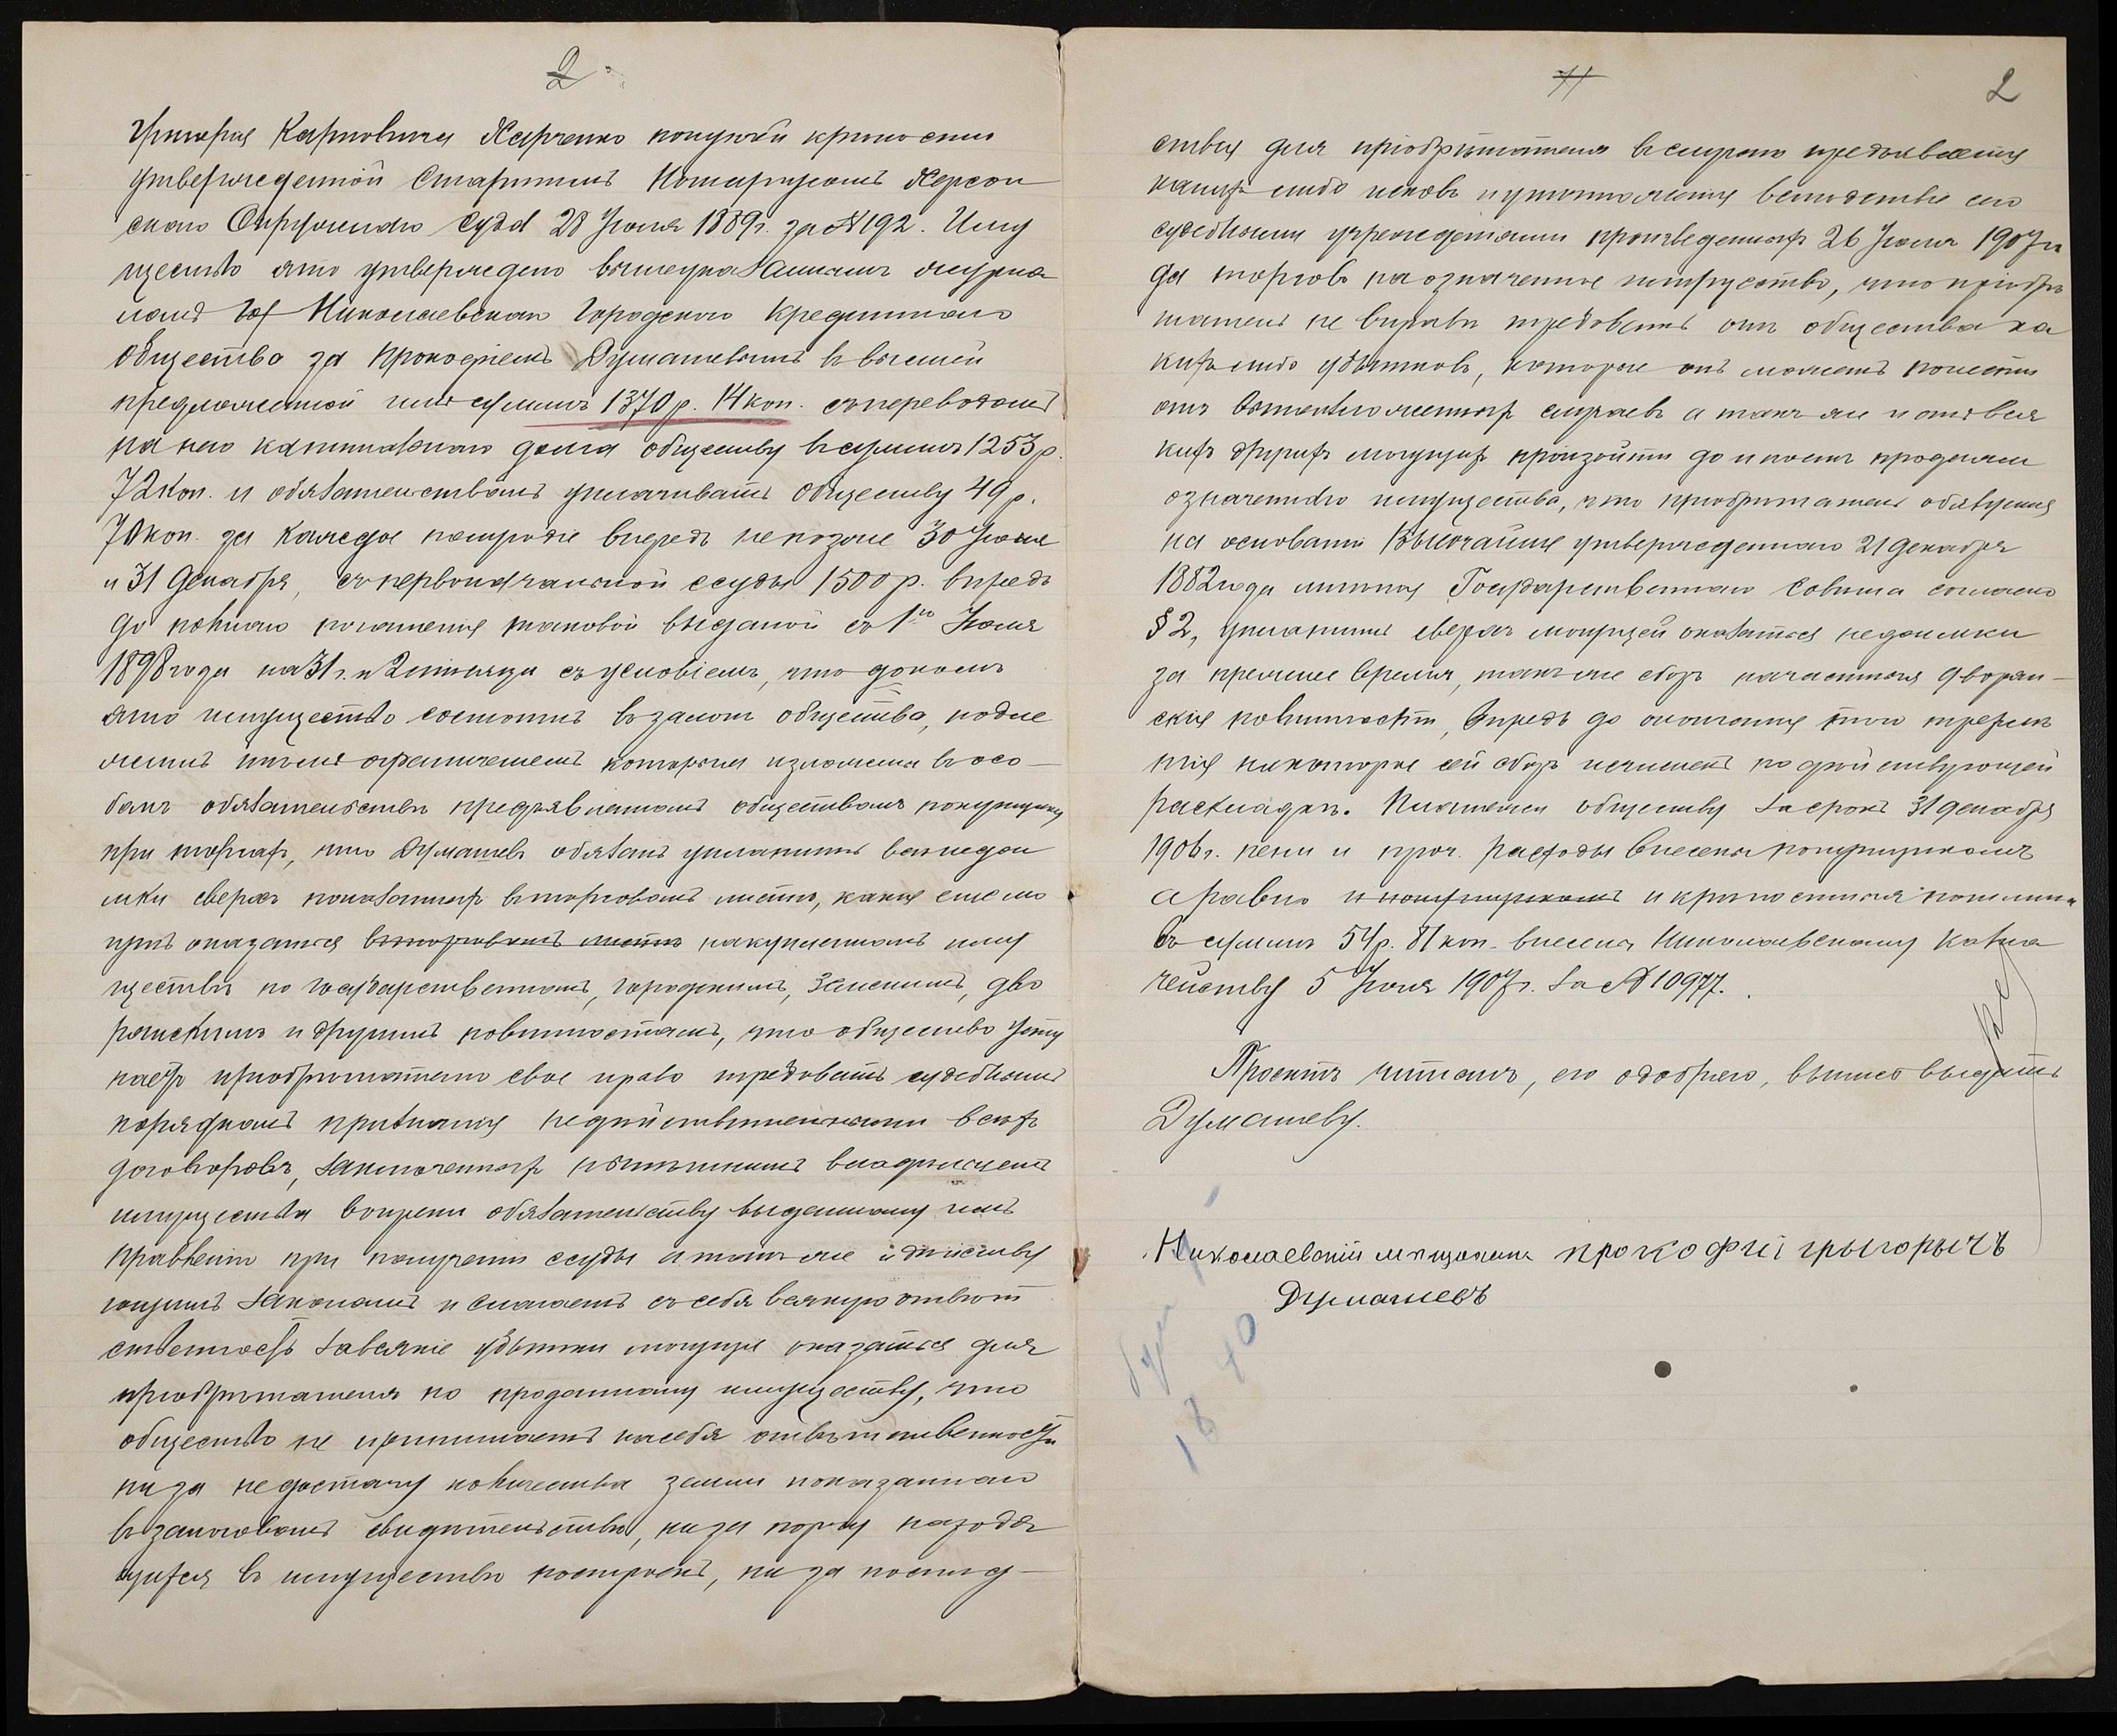 2
Григорія Карповича Харченко покупки крѣпости
утвержденной Старшимъ Нотаріусомъ Херсон
скаго Окружнаго Суда 28 Іюня 1889г. за №192. Иму
щество это утверждено вышеуказаннымъ журна
ломъ Николаевскаго Городского Кредитнаго
Общества за Прокофіемъ Думашевымъ въ высшей
предложенной имъ суммѣ 1370 р. 14 коп. съ переводомъ
на него капитальнаго долга обществу въ суммѣ 1253 р.
72 коп. и обязательствомъ уплачивать обществу 49 р.
70 коп. за каждое полугодіе впередъ не позже 30 Іюня
и 31 Декабря, съ первоначальной ссуды 1500 р. впредь
до полнаго погашенія таковой выданой съ 1го Іюля
1898 года на 31 г. и 2 мѣсяца съ условіемъ, что доколѣ
это имущество состоитъ въ залогѣ общества, подле
житъ тѣмъ ограниченіемъ которыя изложены въ осо-
бомъ обязательствѣ предъявленномъ обществомъ покупщику
при торгахъ, что Думашевъ обязанъ уплатить всѣ недои
мки сверхъ показанныхъ въ торговомъ листѣ, какія еще мо
гутъ оказаться въ торговомъ листѣ на купленномъ иму
ществѣ по государственнымъ, городскимъ, земскимъ, дво
рянскимъ и другимъ повинностямъ, что общество усту
паетъ пріобрѣтателю свое право требовать судебнымъ
порядкомъ признанія недѣйствительными всѣхъ
договоровъ, заключенныхъ прежнимъ владѣльцемъ
имущества вопреки обязательству выданному имъ
Правленію при полученіи ссуды а также и дѣйству
ющимъ законамъ и слагаетъ съ себя всякую отвѣт
ственность за всякіе убытки могущіе оказаться для
пріобрѣтателя по проданному имуществу, что
общество не принимаетъ на себя отвѣтственности
ни за недостачу количества земли показаннаго
въ залоговомъ свидѣтельствѣ, ни за порчу находя
щихся въ имуществѣ построекъ, ни за послѣд-
2
ствія для пріобрѣтателя въ случаѣ предъявленія
какихъ либо исковъ и уничтоженія вслѣдствіе сего
судебными учрежденіями произведенныхъ 26 Іюня 1907 го
да торговъ на означенное имущество, что пріобрѣ
татель не вправѣ требовать отъ общества ка
кихъ либо убытковъ, которые онъ можетъ понести
отъ вышеизложенныхъ случаевъ а такъ же и отъ вся
кихъ другихъ могущихъ произойти до и послѣ продажи
означеннаго имущества, что пріобрѣтатель обязуется
на основаніи Высочайше утвержденнаго 21 Декабря
1882 года мнѣнія Государственнаго Совѣта согласно
§ 2, уплатить сверхъ могущей оказаться недоимки
за прежнее время, также сборъ на частныя дворян-
скія повинности, впредь до окончанія того трехлѣ
тія на которое сей сборъ исчисленъ по дѣйствующей
раскладкѣ. Платежи обществу за срокъ 31 декабря
1906 г. пени и проч. расходы внесены покупщикомъ
а равно и покупщикомъ и крѣпостныя пошлины
въ суммѣ 54 р. 81 коп. внесены Николаевскому Казна
чейству 5 Іюля 1907 г. за № 10977.
Проектъ читалъ, его одобряю, выпись выдать
Думашеву.
Николаевскій мѣщанинъ прокофиі грыгорычъ
Думашевъ